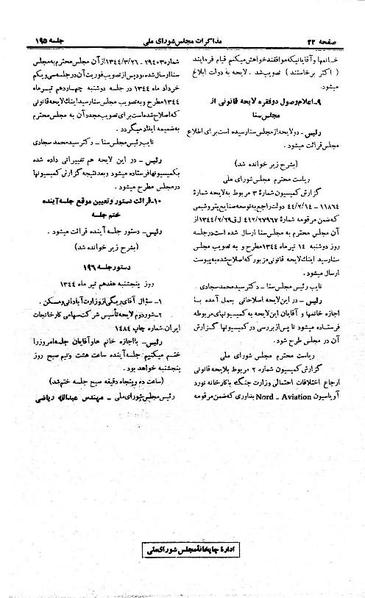 صفحه ۲۲
مذاکرات مجلس شورای ملی
جلسه ۱۹۵
خانمها و آقایانیکه موافقند خواهش میکنم قیام فرمایند
( اکثر برخاستند ) تصویب شد. لایحه به دولت ابلاغ
میشود.
۹- اعلام وصول دو فقره لایحه قانونی از
مجلس سنا
رئیس - دو لایحه از مجلس سنا رسیده است برای اطلاع
مجلس قرائت میشود.
(بشرح زیر خوانده شد)
ریاست محترم مجلس شورای ملی
گزارش کمیسیون شماره ۳ مربوط به لایحه شماره
۱۱۸۶۴ - ۴۴/۲/۱۴ دولت راجع به توسعه صنایع پتروشیمی
که ضمن مرقومه شماره
مجلس سنا ارسال شده است در جلسه
روز دوشنبه ۱۴ تیر ماه ۱۳۴۴ مطرح و به تصویب مجلس
سنا رسید اینک لایحه قانونی مزبور که اصلاح شده به پیوست
ارسال میشود.
نایب رئیس مجلس سنا - دکتر سید محمد سجادی
رئیس - در این لایحه اصلاحاتی بعمل آمده با
اجازه خانمها و آقایان این لایحه به کمیسیونهای مربوطه
فرستاده میشود تا پس از بررسی در کمیسیونها گزارش
آن در مجلس طرح شود.
ریاست محترم مجلس شورای ملی
گزارش کمیسیون شماره ۲ مربوط به لایحه قانونی
ارجاع اختلافات احتمالی وزارت جنگ با کارخانه نورد
آویاسیون Nord - Aviation بداوری که ضمن مرقومه
شماره ۲۹۴۰۳ - ۱۳۴۴/۳/۲۶ از آن مجلس محترم به مجلس
سنا ارسال شده بود پس از تصویب فوریت آن در جلسه سی و یکم
خرداد ماه ۱۳۴۴ در جلسه دوشنبه چهاردهم تیر ماه
۱۳۴۴ مطرح و به تصویب مجلس سنا رسید اینک لایحه قانونی
که اصلاح شده است برای تصویب مجدد آن به مجلس محترم
به ضمیمه ایفاد میگردد.
نایب رئیس مجلس سنا - دکتر سید محمد سجادی
رئیس - در این لایحه هم تغییراتی داده شده
به کمیسیونها فرستاده میشود و بعد نتیجه گزارش کمیسیونها
در مجلس مطرح میشود.
۱۰- قرائت دستور و تعیین موقع جلسه آینده
ختم جلسه
رئیس - دستور جلسه آینده قرائت میشود.
(بشرح زیر خوانده شد)
دستور جلسه ۱۹۶
روز پنجشنبه هفدهم تیر ماه ۱۳۴۴
۱- سؤال آقای ریگی از وزارت آبادانی و مسکن.
۲- شور دوم لایحه تأسیس شرکت سهامی کارخانجات
ایران شماره چاپ ۱۴۸۴
رئیس - با اجازه خانم ها و آقایان جلسه امروز را
ختم میکنیم جلسه آینده ساعت هشت و نیم صبح روز
پنجشنبه خواهد بود.
(ساعت ده و پنجاه دقیقه صبح جلسه ختم شد)
رئیس مجلس شورای ملی - مهندس عبدالله ریاضی
اداره چاپخانه مجلس شورای ملی